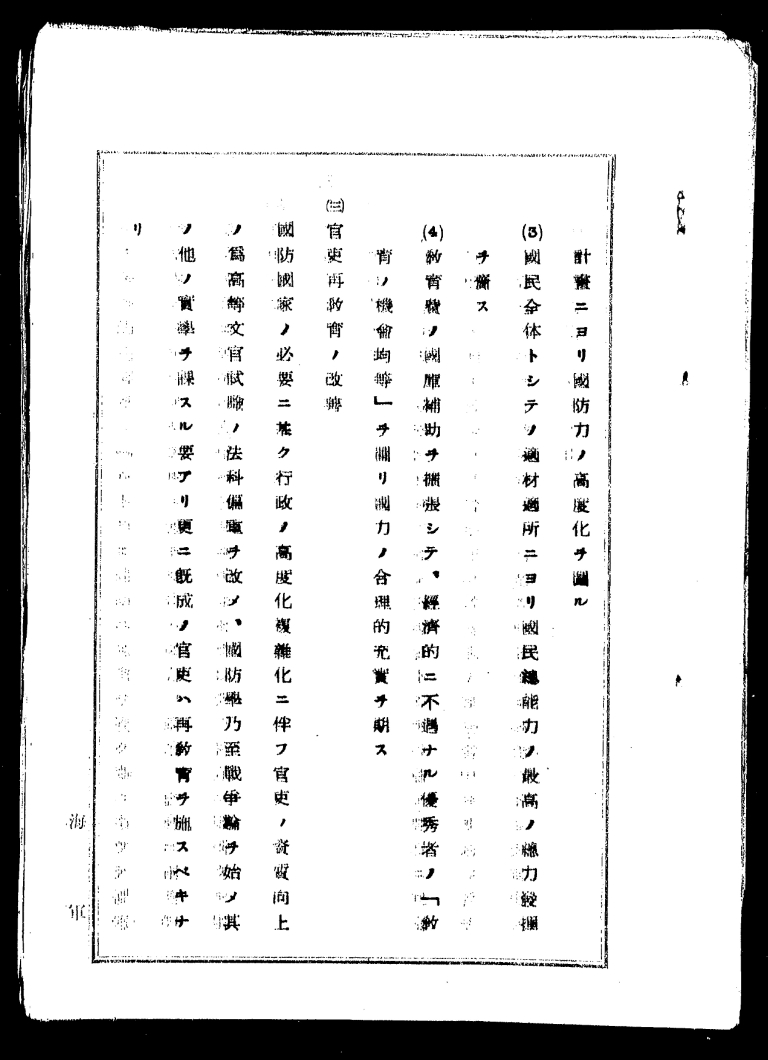 計畫ニヨリ國防力ノ高度化ヲ圖ル
(3)國民全体トシテノ適材適所ニヨリ國民總能力ノ最高ノ總力發揮
ヲ齎ス
(4)敎育費ノ國庫補助ヲ擴張シテ、經濟的ニ不遇ナル優秀者ノ「敎
育ノ機會均等」ヲ圖リ國力ノ合理的充實ヲ期ス
㈢官吏再敎育ノ改善
國防國家ノ必要ニ基ク行政ノ高度化複雜化ニ伴フ官吏ノ資質向上
ノ爲高等文官試驗ノ法科偏重ヲ改メ、國防學乃至戰爭論ヲ始メ其
ノ他ノ實學ヲ課スル要アリ更ニ旣成ノ官吏ハ再敎育ヲ施スベキナ
リ
海軍